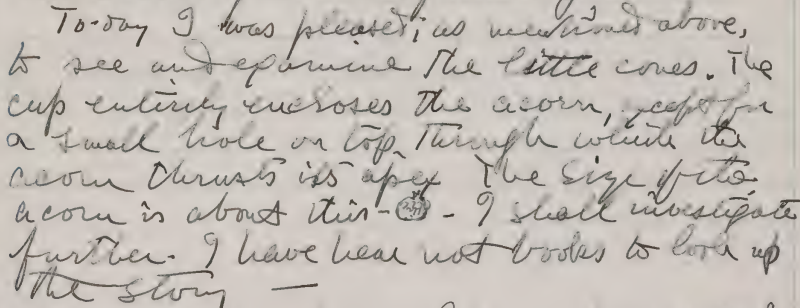 To-day I was pleased, as mentioned above,
to see and examine the little ones. The
cup entirely encloses the acorn, except for
a small hole on top, through which the
acorn thrusts its apex. The size of the
acorn is about this - - I shall investigate
further. I have hear not books to look up
the story —